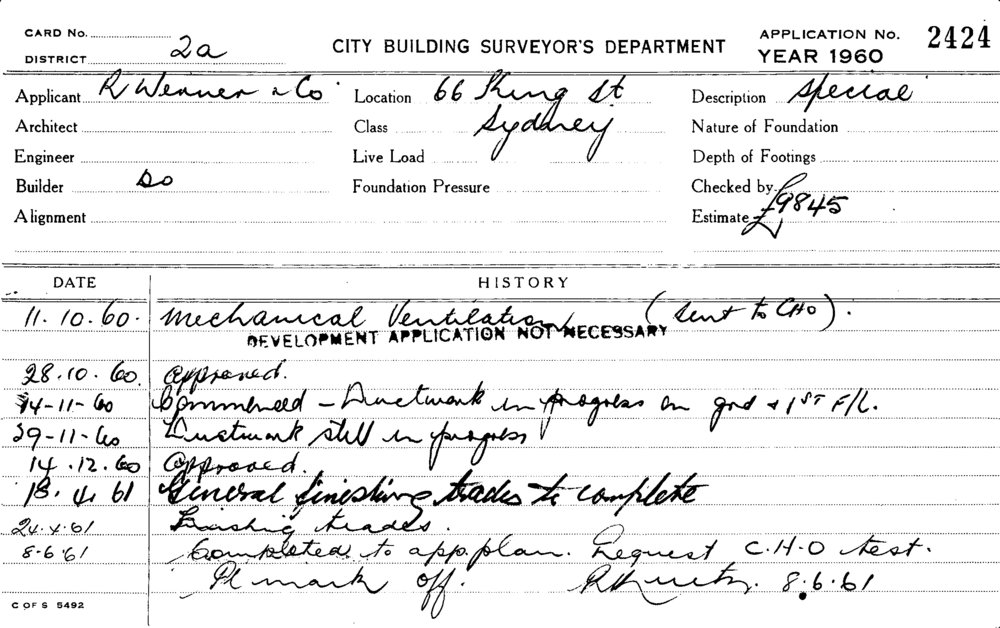 CARD No.
DISTRICT 2a
CITY BUILDING SURVEYOR'S DEPARTMENT
APPLICATION No. 2424
YEAR 1960
Applicant R Wenner & Co Location 66 King St Description Special
Architect Class Sydney Nature of Foundation
Engineer Live Load Depth of Footings
Builder Do Foundation Pressure Checked by
Alignment Estimate £9845
DATE HISTORY
11.10.60. Mechanical Ventilation (Sent to CHO).
DEVELOPMENT APPLICATION NOT NECESSARY
28.10.60. Approved.
14-11-60 Commenced - Ductwork in progress on grd & 1ST F/L.
29-11-60 Ductwork still in progress
14.12.60 Approved.
18.4.61 General finishing trades to complete
24.4.61 Finishing trades.
8.6.61 Completed to app. plan. Request C.H.O test.
Pl mark off. 8.6.61
C OF S 5492